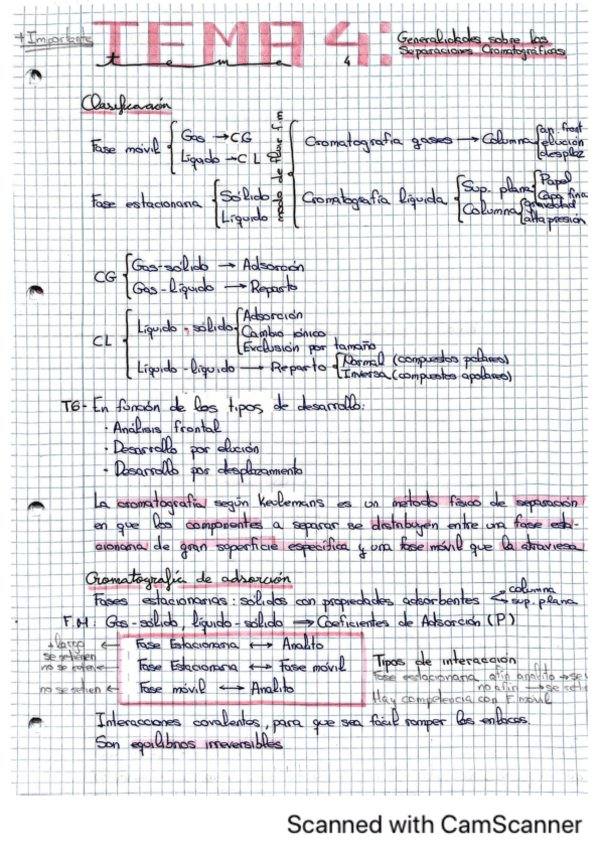 + Importante TEMA 4: Generalidades sobre las
tema 4 Separaciones Cromatográficas
Clasificación
Fase móvil Gas → CG
Líquido → CL
Fase estacionaria Sólido
Líquido
modo de fluir f.m
Cromatografía gases → Columna an. front
elución
desplaz
Cromatografía líquida Sup. plana Papel
Capa fina
Columna gravedad
alta presión
CG Gas-sólido → Adsorción
Gas-líquido → Reparto
CL Líquido-sólido Adsorción
Cambio iónico
Exclusión por tamaño
Líquido-líquido → Reparto Normal (compuestos polares)
Inversa (compuestos apolares)
T6- En función de los tipos de desarrollo:
· Análisis frontal
· Desarrollo por elución
· Desarrollo por desplazamiento
La cromatografía según Keulemans es un método físico de separación
en que los componentes a separar se distribuyen entre una fase esta-
cionaria de gran superficie específica y una fase móvil que la atraviesa
Cromatografía de adsorción
Fases estacionarias: solidos con propiedades adsorbentes columna
sup. plana
F.M: Gas-sólido, líquido-sólido → Coeficientes de Adsorción (P)
+ largo ← Fase Estacionaria ↔ Analito
se retienen
no se retiene ← Fase Estacionaria ↔ Fase móvil
no se retien ← Fase móvil ↔ Analito
Tipos de interacción
Fase estacionaria afin analito → se
no afin → se retie
Hay competencia con F movil
Interacciones covalentes, para que sea fácil romper los enlaces.
Son equilibrios irreversibles
Scanned with CamScanner